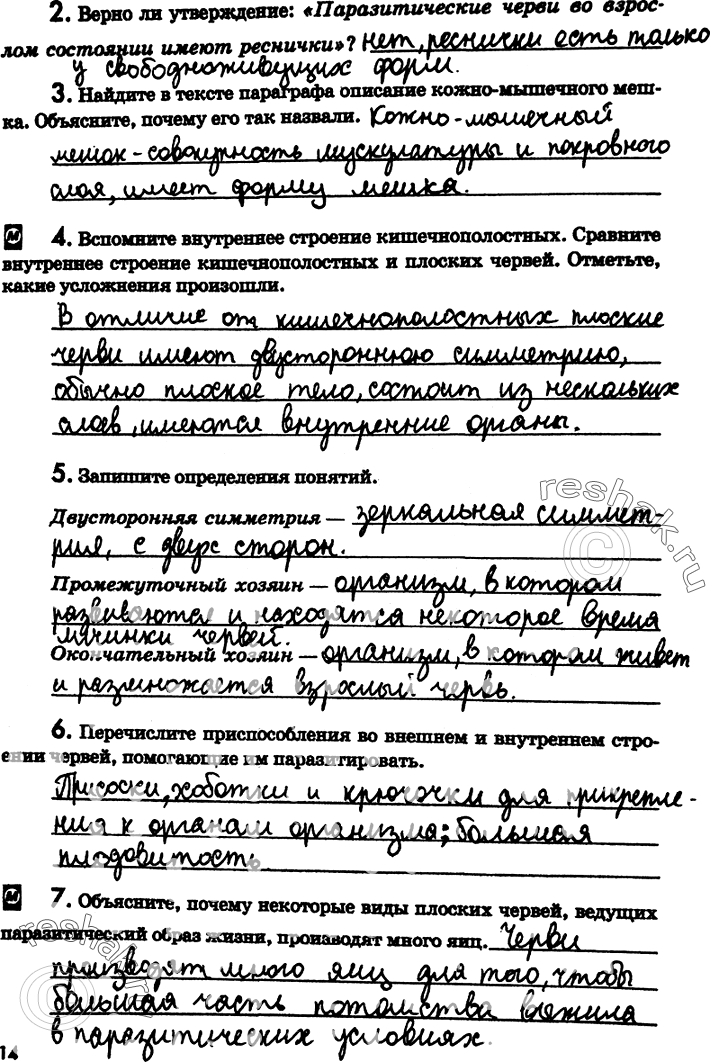 2. Верно ли утверждение: «Паразитические черви во взрос-
лом состоянии имеют реснички»? нет, реснички есть только
у свободноживущих форм.
3. Найдите в тексте параграфа описание кожно-мышечного меш-
ка. Объясните, почему его так назвали. Кожно-мышечный
мешок - совокупность мускулатуры и покровного
слоя, имеет форму мешка.
М 4. Вспомните внутреннее строение кишечнополостных. Сравните
внутреннее строение кишечнополостных и плоских червей. Отметьте,
какие усложнения произошли.
В отличие от кишечнополостных плоские
черви имеют двустороннюю симметрию,
обычно плоское тело, состоит из нескольких
слоев, имеются внутренние органы.
5. Запишите определения понятий.
Двусторонняя симметрия — зеркальная симмет-
рия, с двух сторон.
Промежуточный хозяин — организм, в котором
развиваются и находятся некоторое время
личинки червей.
Окончательный хозяин — организм, в котором живет
и размножается взрослый червь.
6. Перечислите приспособления во внешнем и внутреннем стро-
ении червей, помогающие им паразитировать.
Присоски, хоботки и крючочки для прикрепле-
ния к органам организма; большая
плодовитость
М 7. Объясните, почему некоторые виды плоских червей, ведущих
паразитический образ жизни, производят много яиц. Черви
производят много яиц для того, чтобы
большая часть потомства выжила
в паразитических условиях.
14
reshak.ru